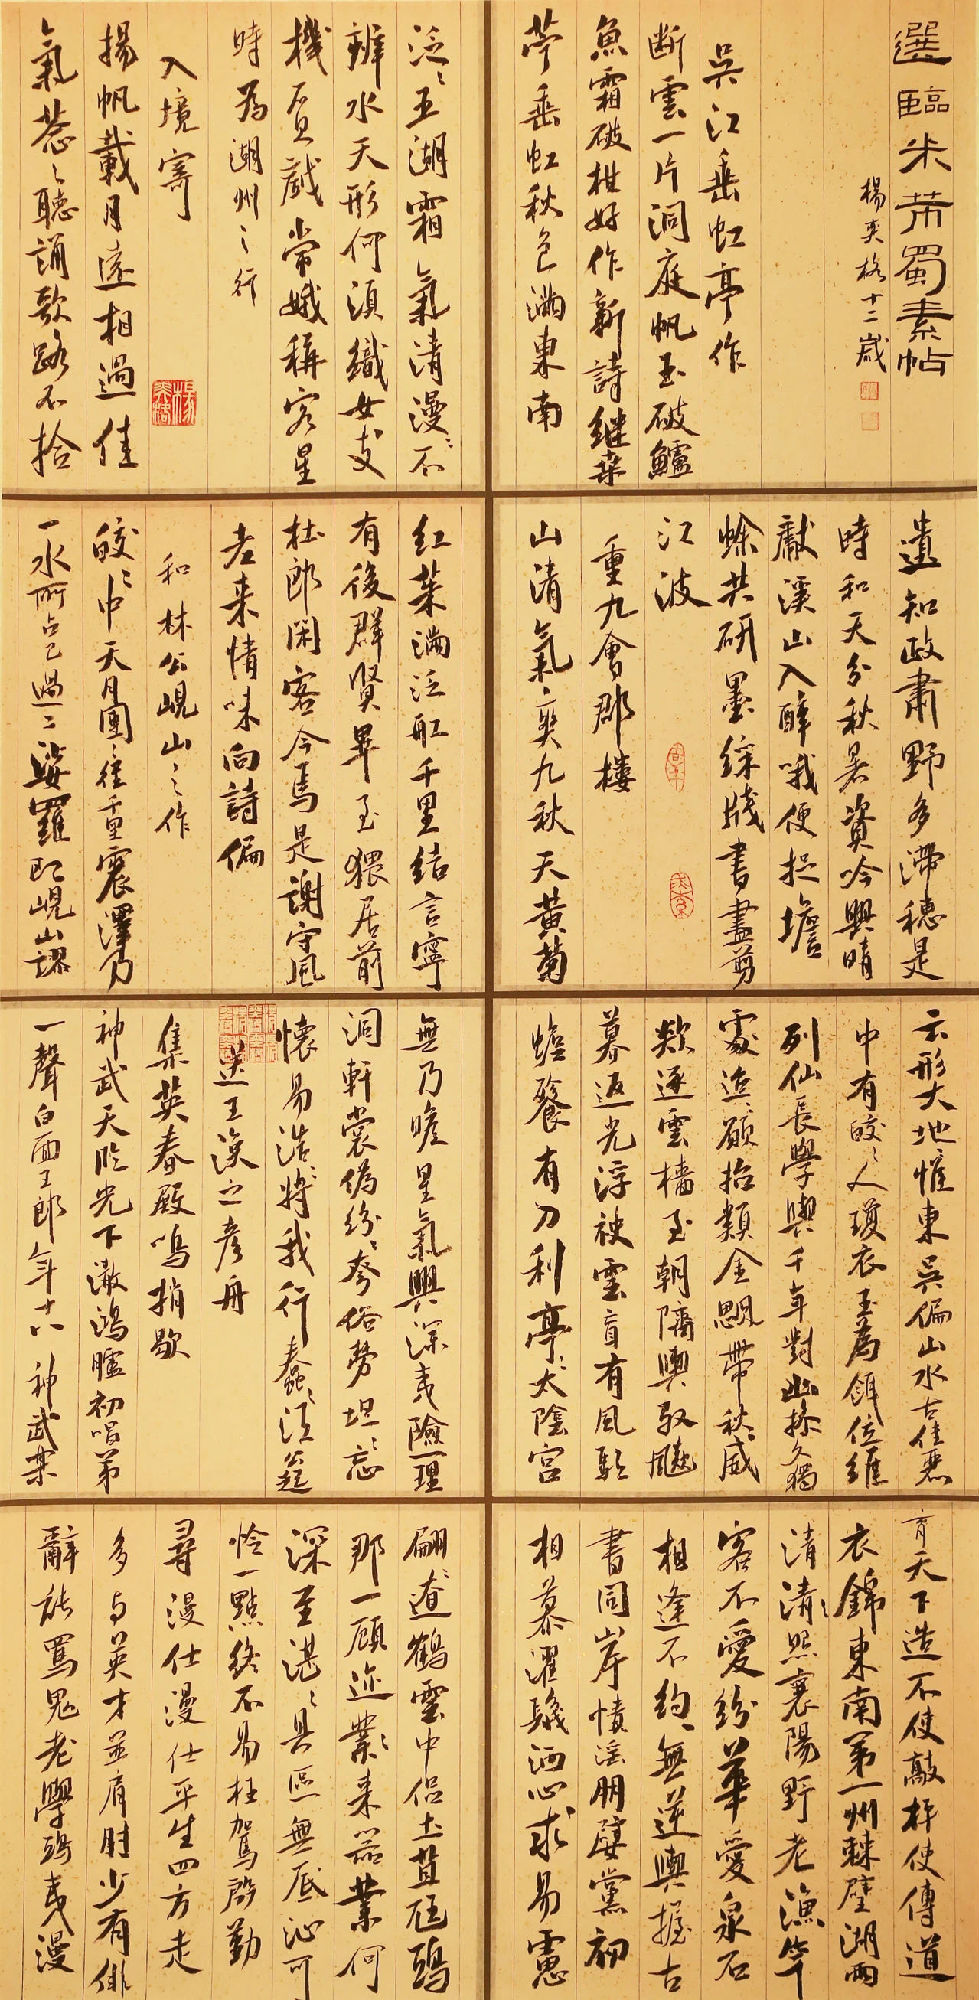 選臨米芾蜀素帖
楊奕格十二歲
吳江垂虹亭作
断雲一片洞庭帆玉破鱸
魚霜破柑好作新詩継桒
苧垂虹秋色滿東南
泛〻五湖霜氣清漫〻不
辨水天形何須織女支
機石戲常娥稱客星
時為湖州之行
入境寄
揚帆載月遠相過佳
氣蒼〻聽誦歌路不拾
遺知政肅野多滯穗是
時和天分秋暑資吟興晴
獻溪山入醉哦便捉蟾
蜍共研墨綵牋書盡剪
江波
重九會郡樓
山清氣爽九秋天黃菊
紅茱滿泛舡千里結言寧
有後群賢畢至猥居前
杜郎閑客今焉是謝守風
老来情味向詩偏
和林公峴山之作
皎〻中天月團〻徑千里震澤乃
一水所占已過二娑羅即峴山謬
云形大地惟東吳偏山水古佳麗
中有皎〻人瓊衣玉為餌位維
列仙長學與千年對幽操久獨
處迢〻願招類金颸帶秋威
欻逐雲檣至朝隮輿馭飇
暮返光浮袂雲盲有風驅
蟾餮有刀利亭〻太陰宮
無乃瞻星氣興深夷險一理
洞軒裳偽紛〻夸俗勞坦〻忘
懷易浩〻將我行蠢〻須公起
送王渙之彥舟
集英春殿鳴捎歇
神武天臨光下澈鴻臚初唱第
一聲白面王郎年十八神武樂
育天下造不使敲枰使傳道
衣錦東南第一州棘璧湖山兩
清〻照襄陽野老漁竿
客不愛紛華愛泉石
相逢不約〻無逆輿握古
書同岸幘淫朋嬖黨初
相慕濯髮洒心求易慮
翩〻遼鶴雲中侶土苴尫鴟
那一顧迩〻来器業何
深至湛〻具區無底沚可
怜一點終不易枉駕殷勤
尋漫仕漫仕平生四方走
多与英才並肩肘少有俳
辭能罵鬼老學鴟夷漫